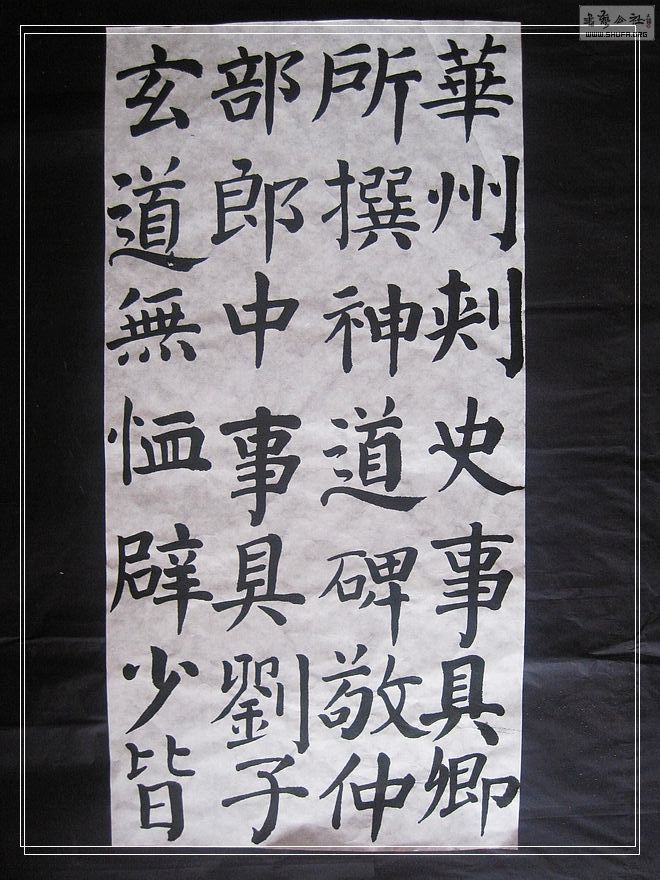 華州刾史事具卿
所撰神道碑敬仲
部郎中事具劉子
玄道無恤辟少皆
書藝公社
WWW.SHUFA.ORG